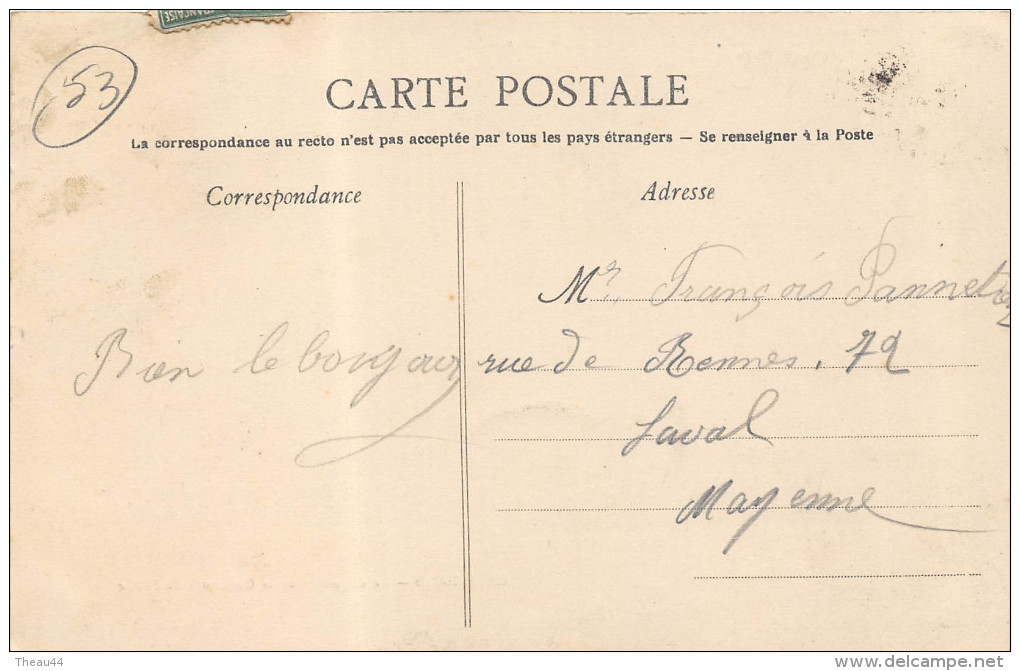 FRANÇAISE
53
CARTE POSTALE
La correspondance au recto n'est pas acceptée par tous les pays étrangers — Se renseigner à la Poste
Correspondance
Bien le bonjour
Adresse
Mr. François
rue de Rennes. 72
Laval
Mayenne
Theau44
delcampe.net